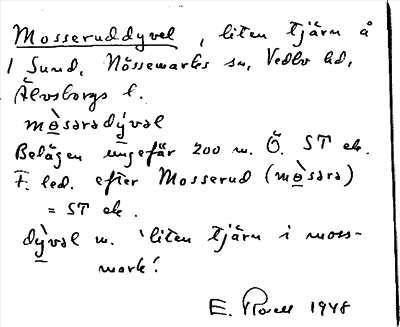 Mosseruddyvel, liten tjärn å
1 Sund, Nössemarks sn, Vedbo hd,
Älvsborgs l.
mò̱saradý̱vəl
Belägen ungefär 200 m. Ö. ST ek.
F. led. efter Mosserud (mò̱sara)
= ST ek.
dỳ̱vəl m. 'liten tjärn i moss-
mark'.
E. Rosell 1948